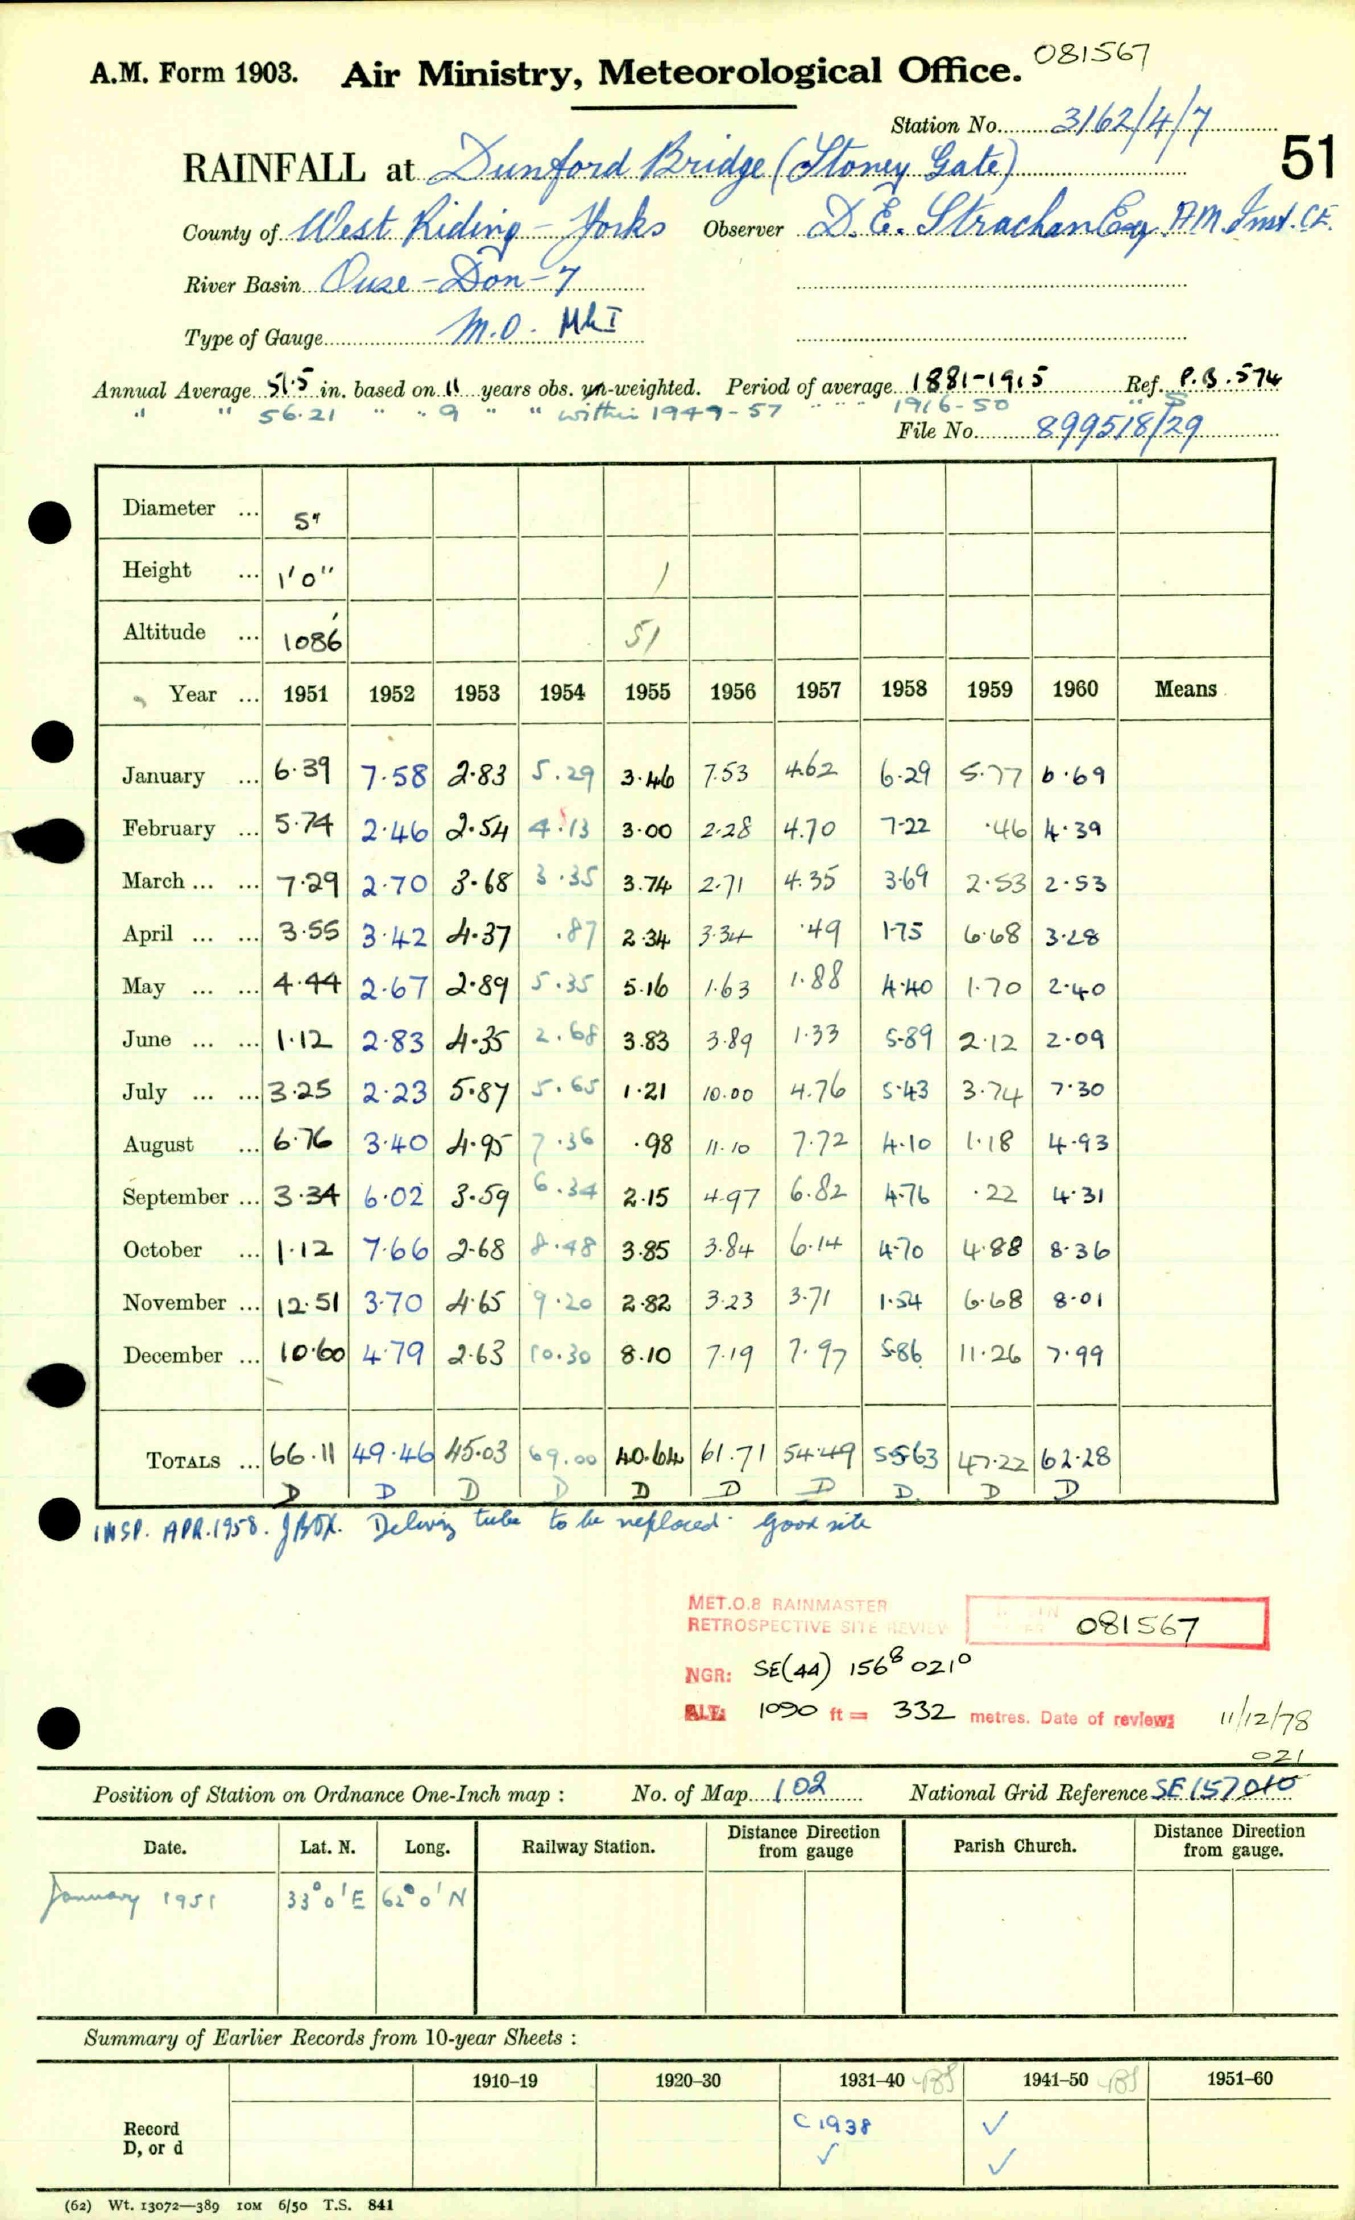 081567
A.M. Form 1903. Air Ministry, Meteorological Office.
Station No. 3162/4/7
51
RAINFALL at Dunford Bridge (Stoney Gate)
County of West Riding - Yorks Observer D. E. Strachan Esq. A.M. Inst. C.E.
River Basin Ouse - Don - 7
Type of Gauge M.O. Mk I
Annual Average 51.5 in. based on 11 years obs. un-weighted. Period of average 1881-1915 Ref. P.B. 574
" " 56.21 " " 9 " " within 1949-57 " " " 1916-50 " S
File No. 899518/29
Diameter ... 5"
Height ... 1'0" 1
Altitude ... 1086' 51
Year ... 1951 1952 1953 1954 1955 1956 1957 1958 1959 1960 Means
January ... 6.39 7.58 2.83 5.29 3.46 7.53 4.62 6.29 5.77 6.69
February ... 5.74 2.46 2.54 4.13 3.00 2.28 4.70 7.22 .46 4.39
March ... ... 7.29 2.70 3.68 3.35 3.74 2.71 4.35 3.69 2.53 2.53
April ... ... 3.55 3.42 4.37 .87 2.34 3.34 .49 1.75 6.68 3.28
May ... ... 4.44 2.67 2.89 5.35 5.16 1.63 1.88 4.40 1.70 2.40
June ... ... 1.12 2.83 4.35 2.68 3.83 3.89 1.33 5.89 2.12 2.09
July ... ... 3.25 2.23 5.87 5.65 1.21 10.00 4.76 5.43 3.74 7.30
August ... 6.76 3.40 4.95 7.36 .98 11.10 7.72 4.10 1.18 4.93
September ... 3.34 6.02 3.59 6.34 2.15 4.97 6.82 4.76 .22 4.31
October ... 1.12 7.66 2.68 8.48 3.85 3.84 6.14 4.70 4.88 8.36
November ... 12.51 3.70 4.65 9.20 2.82 3.23 3.71 1.54 6.68 8.01
December ... 10.60 4.79 2.63 10.30 8.10 7.19 7.97 5.86 11.26 7.99
TOTALS ... 66.11 49.46 45.03 69.00 40.64 61.71 54.49 55.63 47.22 62.28
D D D D D D D D D D
INSP. APR. 1958. Delivery tube to be replaced. Good site
MET.O.8 RAINMASTER
RETROSPECTIVE SITE REVIEW 081567
NGR: SE(44) 156⁸ 021⁰
ALT: 1090 ft = 332 metres. Date of review: 11/12/78
021
Position of Station on Ordnance One-Inch map : No. of Map 102 National Grid Reference SE 157010
Date. Lat. N. Long. Railway Station. Distance from gauge Direction Parish Church. Distance from gauge. Direction
January 1951 33° 0' E 62° 0' N
Summary of Earlier Records from 10-year Sheets :
1910–19 1920–30 1931–40 1941–50 1951–60
Record C 1938 ✓
D, or d ✓ ✓
(62) Wt. 13072—389 10M 6/50 T.S. 841